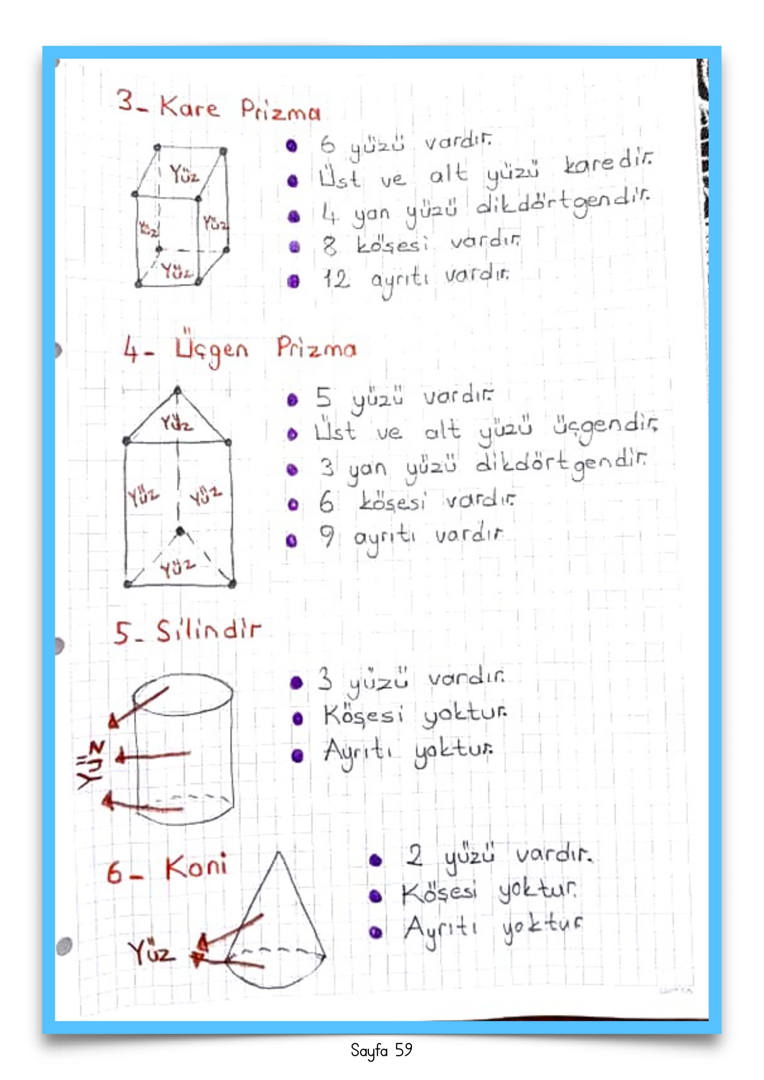 3- Kare Prizma
Yüz
Yüz
Yüz
Yüz
6 yüzü vardır.
Üst ve alt yüzü karedir.
4 yan yüzü dikdörtgendir.
8 köşesi vardır.
12 ayrıtı vardır.
4- Üçgen Prizma
Yüz
Yüz
Yüz
Yüz
5 yüzü vardır.
Üst ve alt yüzü üçgendir.
3 yan yüzü dikdörtgendir.
6 köşesi vardır.
9 ayrıtı vardır
5- Silindir
Yüz
3 yüzü vardır.
Köşesi yoktur.
Ayrıtı yoktur.
6- Koni
Yüz
2 yüzü vardır.
Köşesi yoktur.
Ayrıtı yoktur
Sayfa 59